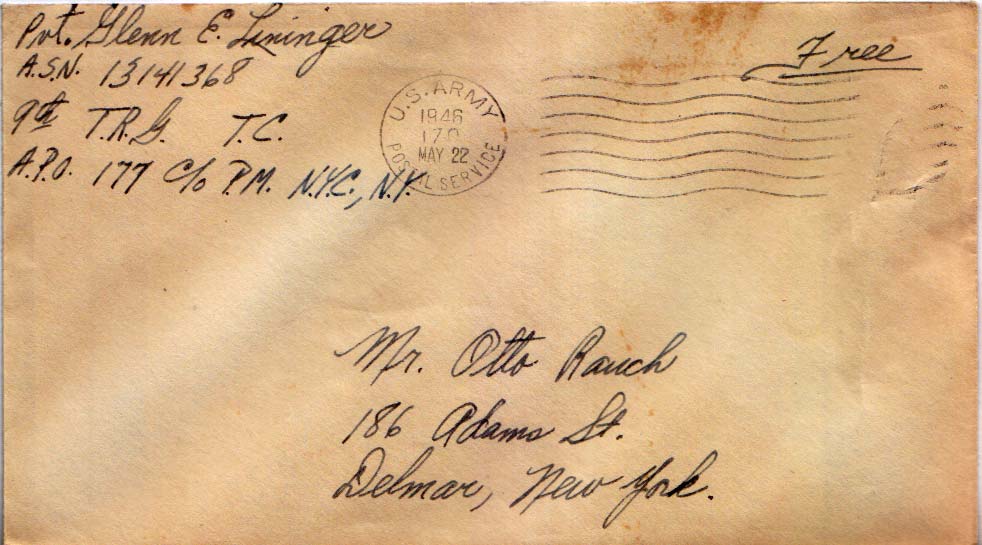 Pvt. Glenn E. Lininger
A.S.N. 13141368
9th T.R.G. T.C.
A.P.O. 177 c/o P.M. N.Y.C., N.Y.
U.S. ARMY
1946
170
MAY 22
POSTAL SERVICE
Free
Mr. Otto Rauch
186 Adams St.
Delmar, New York.